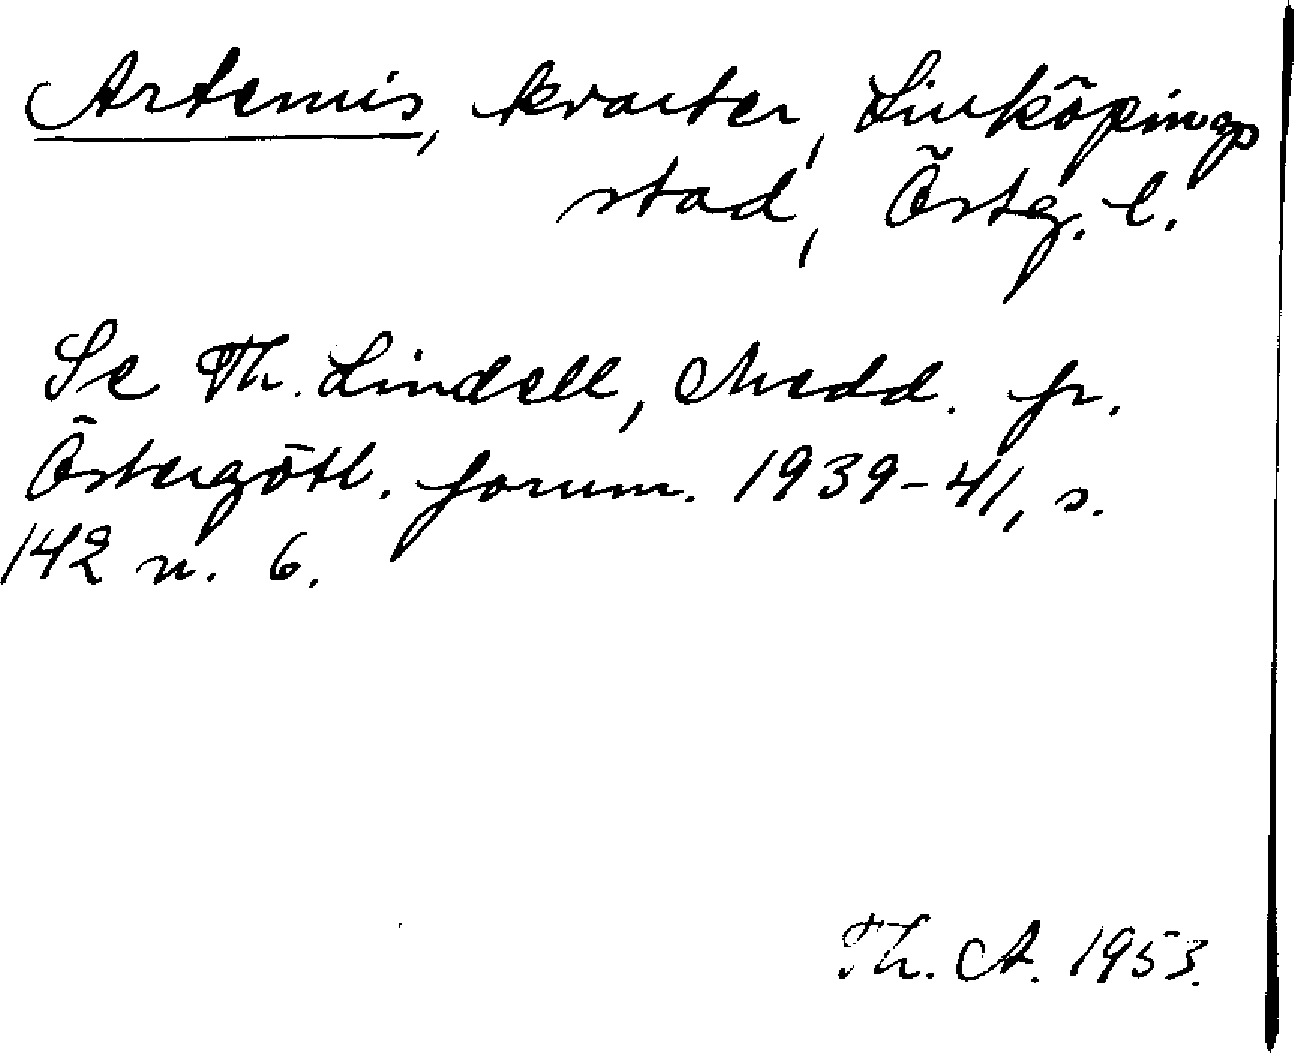 Artemis, kvarter, Linköpings
stad, Östg. l.
Se Th. Lindell, Medd. fr.
Östergötl. fornm. 1939-41, s.
142 n. 6.
Th. A. 1953.